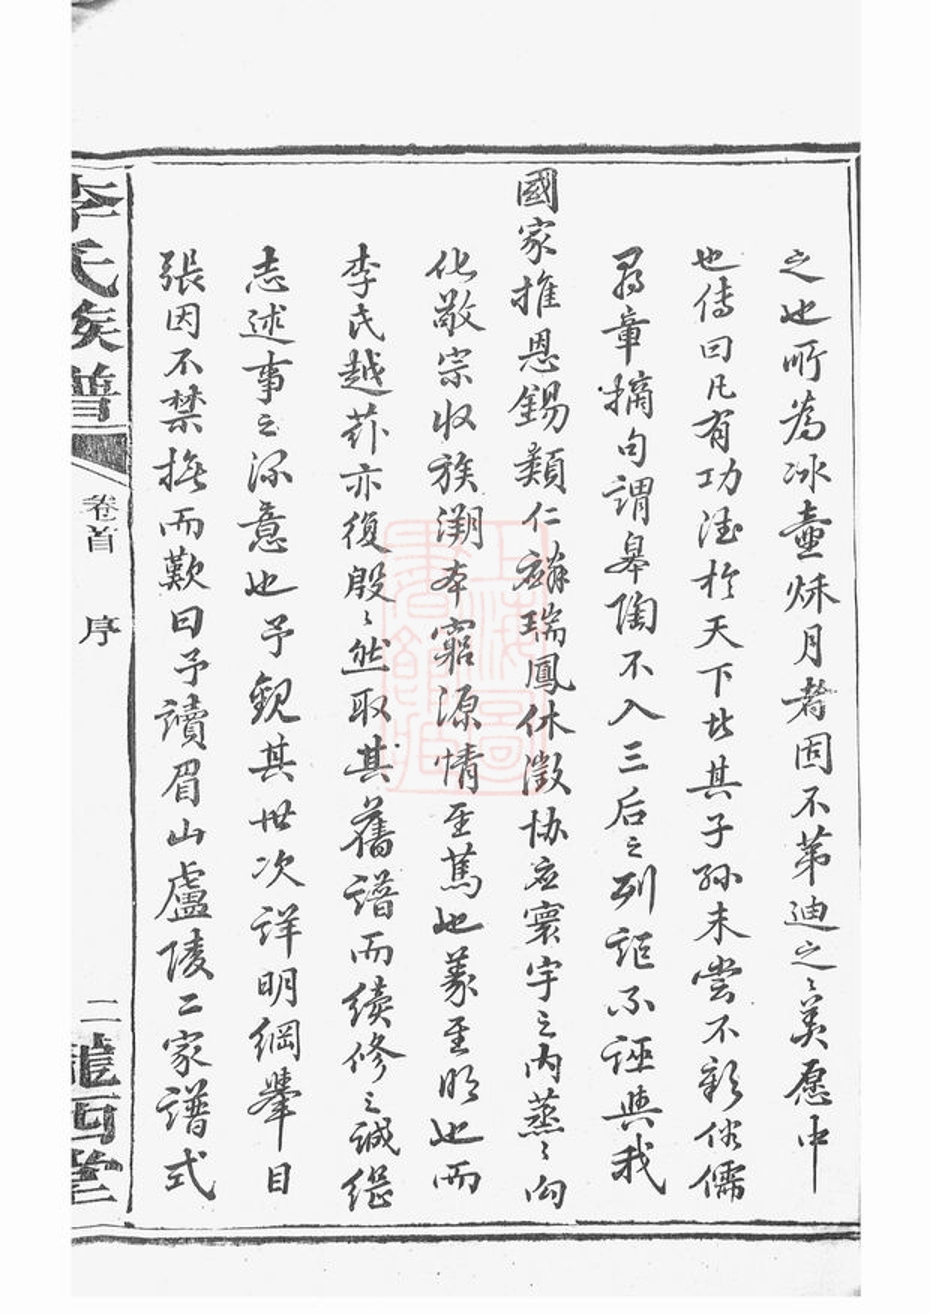 之也所為冰壺秋月者固不第迪之之美愿中
也傳曰凡有功德於天下此其子孫未嘗不彰俗儒
尋章摘句謂皋陶不入三后之列詎不誣與我
國家推恩錫類仁麟瑞鳳休徵協應寰宇之內蒸之向
化敬宗收族溯本窮源情至篤也義至明也而
李氏越葑亦復殷之然取其舊譜而續修之誠繼
志述事之深意也予觀其世次詳明綱舉目
張因不禁撫而歎曰予讀眉山廬陵二家譜式
李氏族譜
卷首 序
二
隴西堂